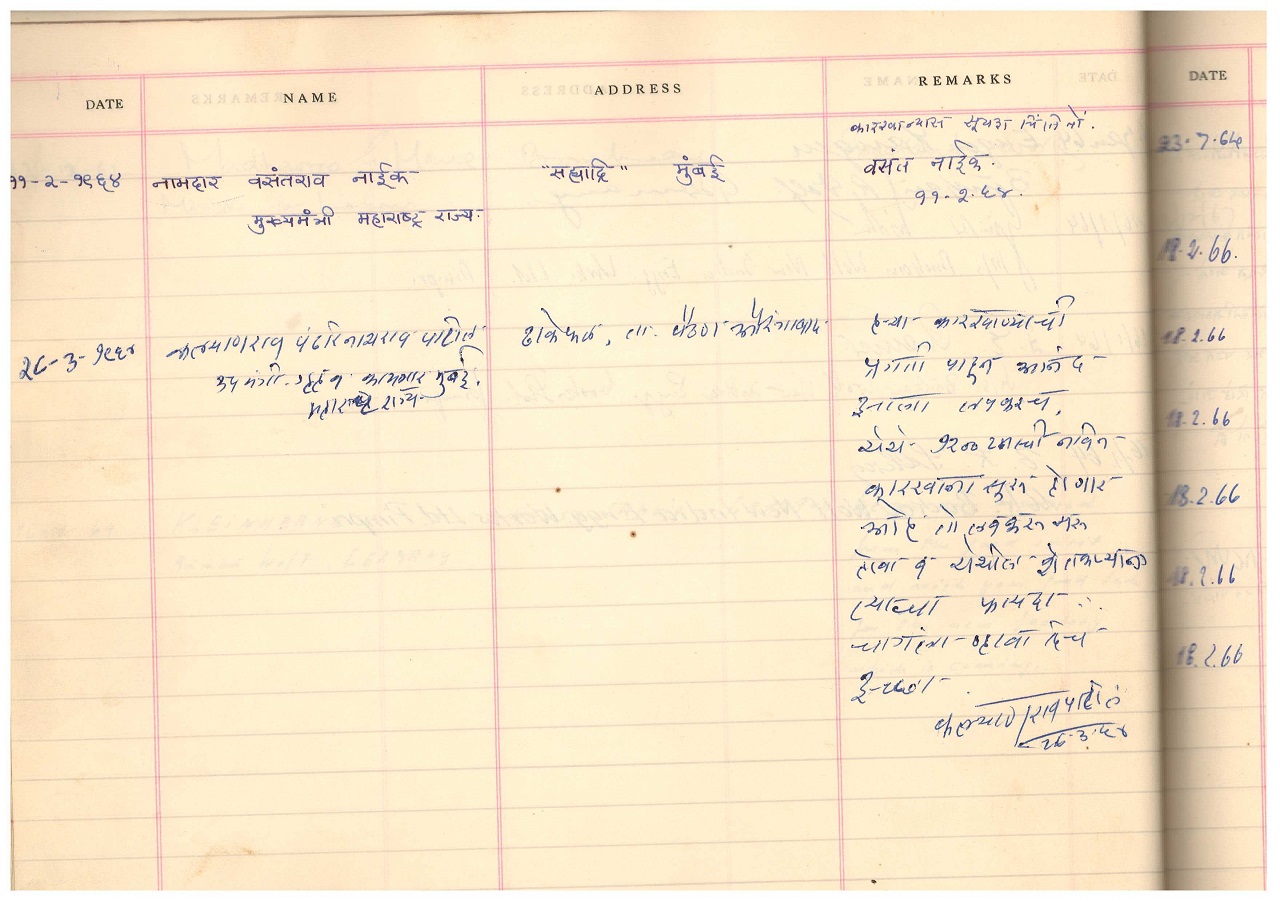 DATE NAME ADDRESS REMARKS DATE
कारखान्यास सुयश चिंतितो.
११-२-१९६४ नामदार वसंतराव नाईक "सह्याद्रि" मुंबई वसंत नाईक.
मुख्यमंत्री महाराष्ट्र राज्य. ११.२.६४.
२८-३-१९६४ कल्याणराव पंढरिनाथराव पाटील ढाकेफळ, ता. पैठण औरंगाबाद
उपमंत्री गृह व कामगार मुंबई.
महाराष्ट्र राज्य
ह्या कारखाण्याची
प्रगती पाहून आनंद
झाला लवकरच
येथे १२०० टनाची नविन
कारखाना सुरु होणार
आहे तो लवकर सुरु
होवो व येथील शेतकऱ्यांना
त्याचा फायदा
चांगला व्हावा हिच
इच्छा.
कल्याणराव पाटील
२८.३.६४
23-7-64
18.2.66.
18.2.66
18.2.66
18.2.66
18.2.66
18.2.66